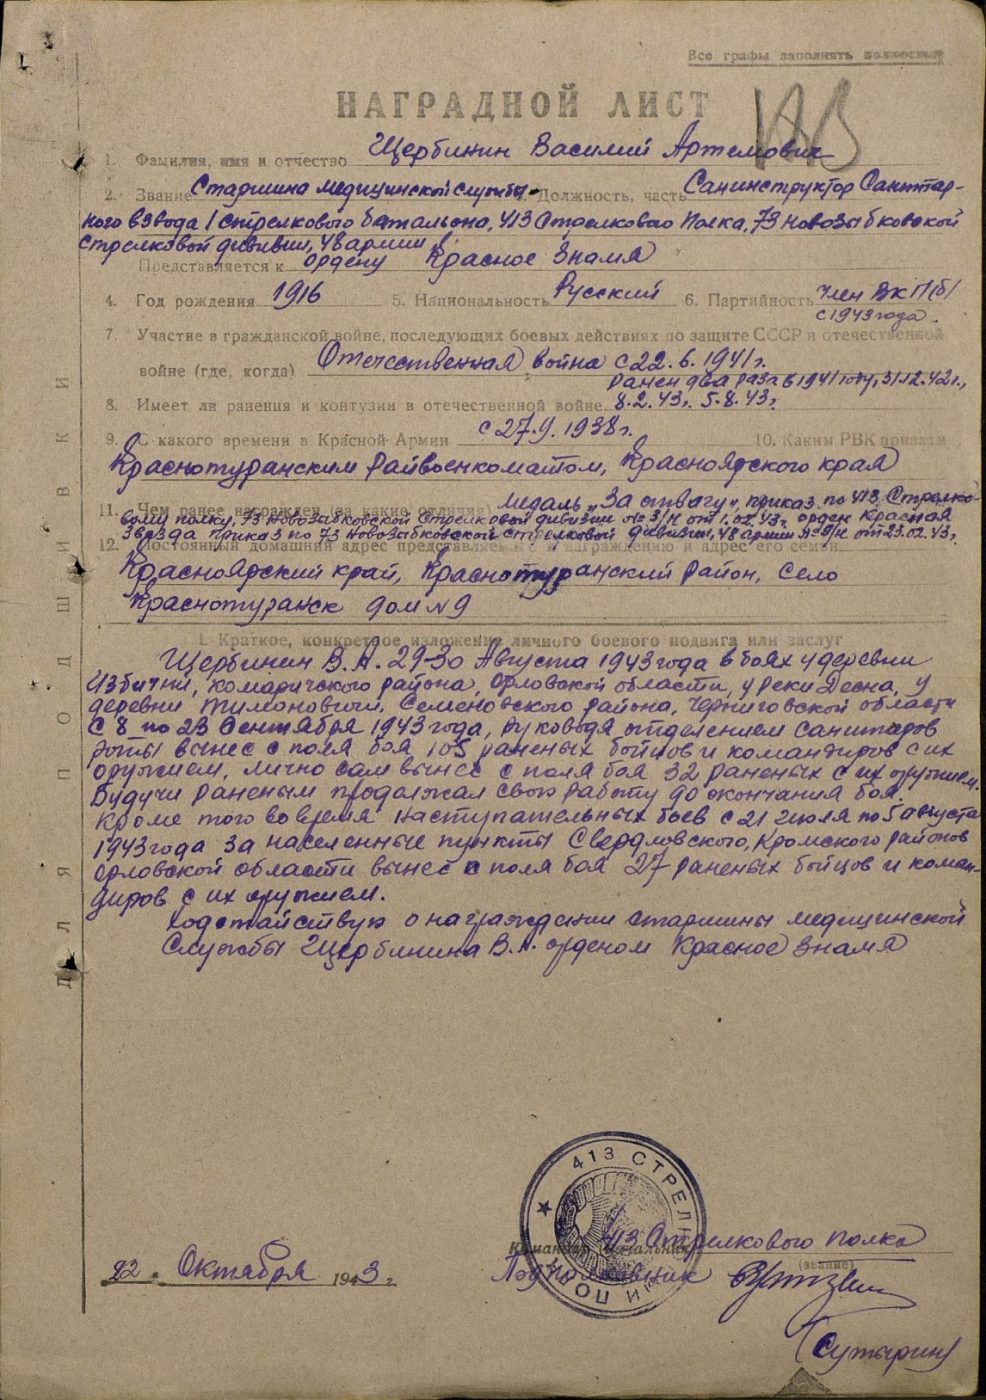 Все графы заполнять полностью
НАГРАДНОЙ ЛИСТ
1. Фамилия, имя и отчество Щербинин Василий Артемович
2. Звание Старшина медицинской службы Должность, часть Санинструктор Санитар-
ного взвода 1 стрелкового батальона, 413 Стрелкового Полка, 73 Новозыбковской
стрелковой дивизии, 48 армии
Представляется к ордену Красное Знамя
4. Год рождения 1916 5. Национальность Русский 6. Партийность член ВКП(б)
с 1943 года.
7. Участие в гражданской войне, последующих боевых действиях по защите СССР и отечественной
войне (где, когда) Отечественная война с 22.6.1941 г.
ранен два раза в 1941 году, 31.12.42 г.,
8. Имеет ли ранения и контузии в отечественной войне 8.2.43 г. 5.8.43 г.
9. С какого времени в Красной Армии с 27.9.1938 г. 10. Каким РВК призван
Краснотуранским райвоенкоматом, Красноярского края
11. Чем ранее награжден (за какие отличия) Медаль „За отвагу", приказ по 413 Стрелко-
вому полку, 73 Новозыбковской Стрелковой дивизии № 3/н от 1.02.43 г. орден Красная
Звезда приказ по 73 Новозыбковской стрелковой дивизии, 48 армии № 8/н от 23.02.43 г.
12. Постоянный домашний адрес представляемого к награждению и адрес его семьи
Красноярский край, Краснотуранский район, село
Краснотуранск дом № 9
I. Краткое, конкретное изложение личного боевого подвига или заслуг
Щербинин В.А. 29-30 Августа 1943 года в боях у деревни
Избични, Комаричского района, Орловской области, у реки Десна, у
деревни Тимоновичи, Семеновского района, Черниговской области
с 8 по 23 Сентября 1943 года, руководя отделением санитаров
роты вынес с поля боя 105 раненых бойцов и командиров с их
оружием, лично сам вынес с поля боя 32 раненых с их оружием.
Будучи раненым продолжал свою работу до окончания боя.
Кроме того во время наступательных боев с 21 июля по 5 августа
1943 года за населенные пункты Свердловского, Кромского районов
Орловской области вынес с поля боя 27 раненых бойцов и коман-
диров с их оружием.
Ходотайствую о награждении старшины медицинской
Службы Щербинина В.А. орденом Красное Знамя
ДЛЯ ПОДШИВКИ
413 СТРЕЛК
ИЙ ПОЛК
Командир (начальник) 413 Стрелкового полка
(звание)
22 Октября 1943 г. Подполковник
(Сутырин)